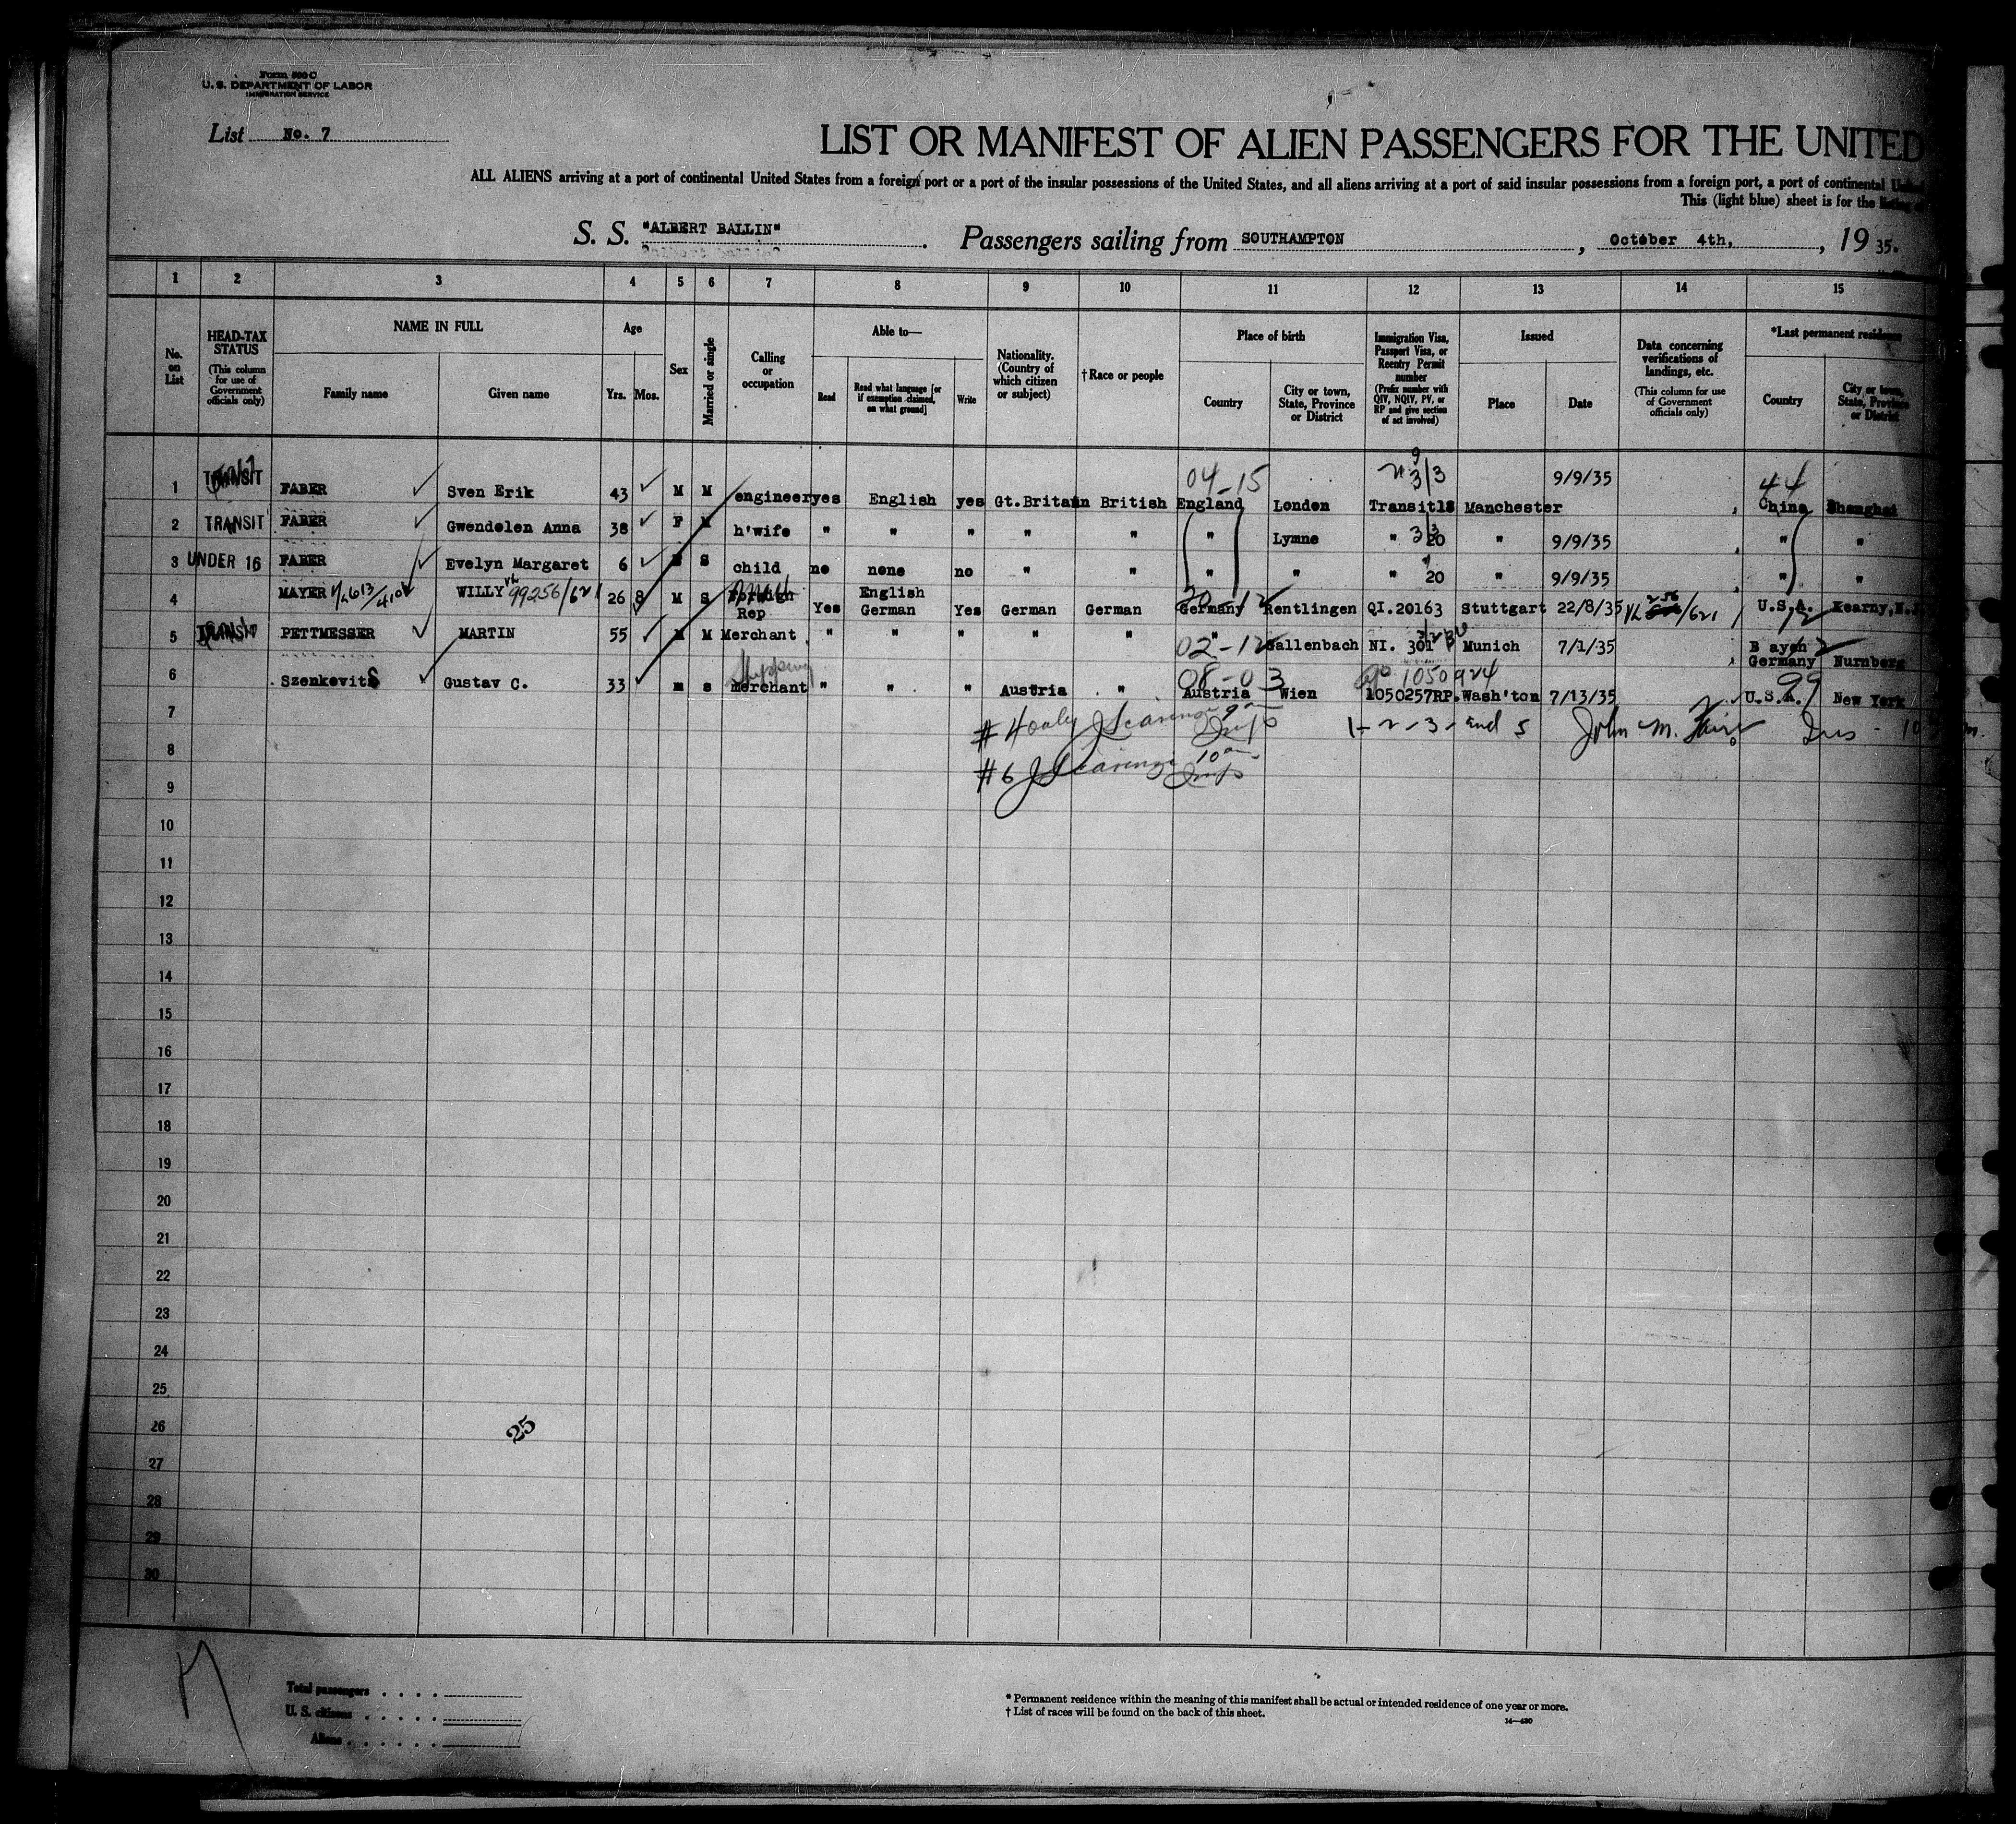 Form 500 C
U. S. DEPARTMENT OF LABOR
IMMIGRATION SERVICE
List No. 7
LIST OR MANIFEST OF ALIEN PASSENGERS FOR THE UNITED
ALL ALIENS arriving at a port of continental United States from a foreign port or a port of the insular possessions of the United States, and all aliens arriving at a port of said insular possessions from a foreign port, a port of continental
This (light blue) sheet is for the listing of
S. S. "ALBERT BALLIN". Passengers sailing from SOUTHAMPTON, October 4th, , 19 35.
1 2 3 4 5 6 7 8 9 10 11 12 13 14 15
No. on List
HEAD-TAX STATUS (This column for use of Government officials only)
NAME IN FULL
Family name Given name
Age
Yrs. Mos.
Sex
Married or single
Calling or occupation
Able to—
Read Read what language [or if exemption claimed, on what ground] Write
Nationality. (Country of which citizen or subject)
†Race or people
Place of birth
Country City or town, State, Province or District
Immigration Visa, Passport Visa, or Reentry Permit number (Prefix number with QIV, NQIV, PV, or RP and give section of act involved)
Issued
Place Date
Data concerning verifications of landings, etc. (This column for use of Government officials only)
*Last permanent residence
Country City or town, State, Province or District
04-15 3/3 44
1 TRANSIT FABER Sven Erik 43 M M engineer yes English yes Gt.Britain British England London Transit18 Manchester 9/9/35 China Shanghai
2 TRANSIT FABER Gwendolen Anna 38 F M h'wife " " " " " " Lymne " 20 " 9/9/35 " "
3 UNDER 16 FABER Evelyn Margaret 6 S child no none no " " " " " 20 " 9/9/35 " "
4 MAYER WILLY 99256/621 26 8 M S Foreign Rep Yes English German Yes German German Germany Rentlingen QI.20163 Stuttgart 22/8/35 /621 U.S.A. Kearny, N.J.
5 TRANSIT PETTMESSER MARTIN 55 M M Merchant " " " " " " 02-12 Gallenbach NI. 301 Munich 7/1/35 B ayern Germany Nurnberg
6 Szenkovits Gustav C. 33 m s Shipping merchant " " " Austria " 08-03 Austria Wien 1050924 1050257RP. Wash'ton 7/13/35 99 U.S.A. New York
7 #4 only 1-2-3- and 5 John M. Ins
8 #6
9
10
11
12
13
14
15
16
17
18
19
20
21
22
23
24
25
26
25
27
28
29
30
Total passengers . . . .
U. S. citizens . . . . .
Aliens . . . . . .
* Permanent residence within the meaning of this manifest shall be actual or intended residence of one year or more.
† List of races will be found on the back of this sheet.
14—430